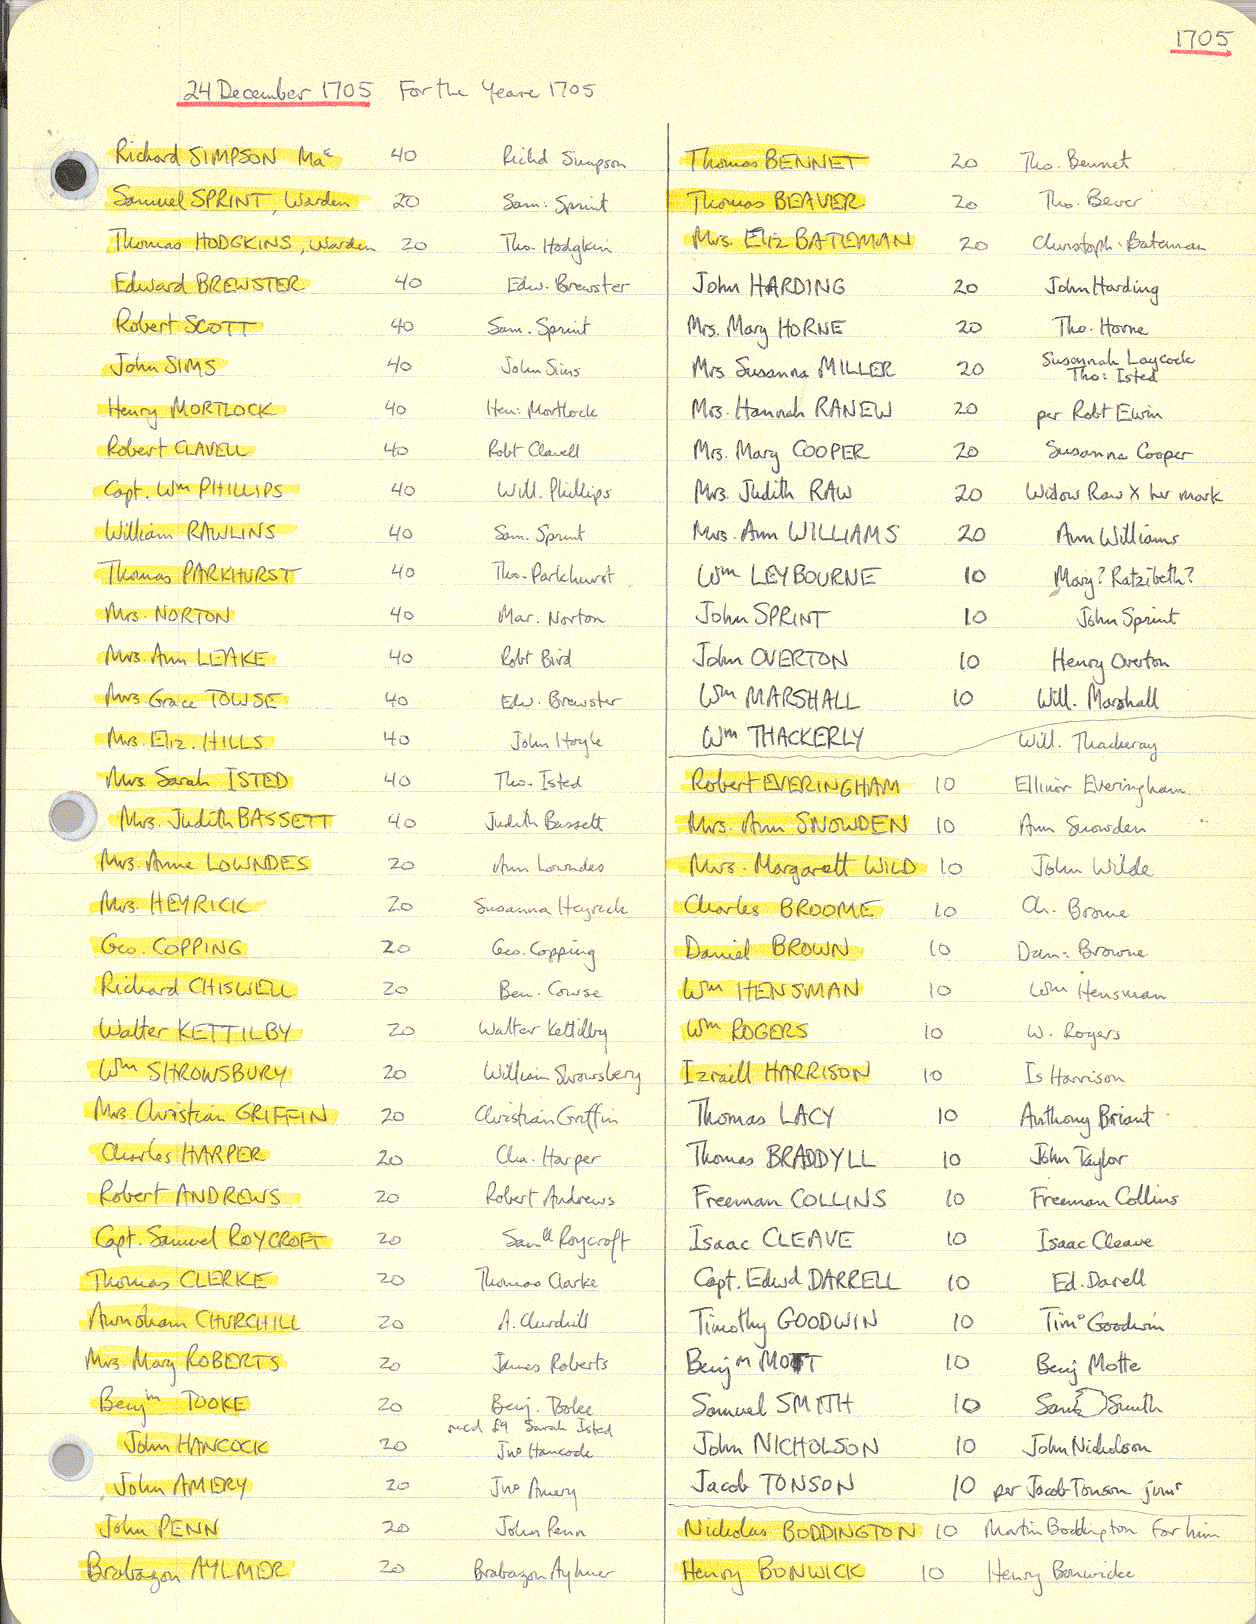 1705
24 December 1705 For the Yeare 1705
Richard SIMPSON Mar 40 Richd Simpson
Samuel SPRINT, Warden 20 Sam: Sprint
Thomas HODGKINS, Warden 20 Tho. Hodgkin
Edward BREWSTER 40 Edw. Brewster
Robert SCOTT 40 Sam. Sprint
John SIMS 40 John Sims
Henry MORTLOCK 40 Hen: Mortlock
Robert CLAVELL 40 Robt Clavell
Capt. Wm PHILLIPS 40 Will. Phillips
William RAWLINS 40 Sam. Sprint
Thomas PARKHURST 40 Tho. Parkhurst
Mrs. NORTON 40 Mar. Norton
Mrs. Ann LEAKE 40 Robt Bird
Mrs Grace TOWSE 40 Edw. Brewster
Mrs. Eliz. HILLS 40 John Hoyle
Mrs Sarah ISTED 40 Tho. Isted
Mrs. Judith BASSETT 40 Judith Bassett
Mrs. Anne LOWNDES 20 Ann Lowndes
Mrs. HEYRICK 20 Susanna Heyrick
Geo. COPPING 20 Geo. Copping
Richard CHISWELL 20 Ben. Cowse
Walter KETTILBY 20 Walter Kettilby
Wm SHROWSBURY 20 William Shrowsbery
Mrs. Christian GRIFFIN 20 Christian Griffin
Charles HARPER 20 Cha. Harper
Robert ANDREWS 20 Robert Andrews
Capt. Samuel ROYCROFT 20 Samll Roycroft
Thomas CLERKE 20 Thomas Clarke
Awnsham CHURCHILL 20 A. Churchill
Mrs Mary ROBERTS 20 James Roberts
Benjm TOOKE 20 Benj. Tooke
recd £9 Sarah Isted
John HANCOCK 20 Jno Hancock
John AMERY 20 Jno Amery
John PENN 20 John Penn
Brabazon AYLMER 20 Brabazon Aylmer
Thomas BENNET 20 Tho. Bennet
Thomas BEAVER 20 Tho. Bever
Mrs. Eliz BATEMAN 20 Christoph. Bateman
John HARDING 20 John Harding
Mrs. Mary HORNE 20 Tho. Horne
Mrs Susanna MILLER 20 Susannah Laycock
Tho: Isted
Mrs. Hannah RANEW 20 per Robt Elwin
Mrs. Mary COOPER 20 Susanna Cooper
Mrs. Judith RAW 20 Widow Raw X her mark
Mrs. Ann WILLIAMS 20 Ann Williams
Wm LEYBOURNE 10 Mary? Ratzibeth?
John SPRINT 10 John Sprint
John OVERTON 10 Henry Overton
Wm MARSHALL 10 Will. Marshall
Wm THACKERLY Will. Thackeray
Robert EVERINGHAM 10 Ellinor Everingham
Mrs. Ann SNOWDEN 10 Ann Snowden
Mrs. Margarett WILD 10 John Wilde
Charles BROOME 10 Ch. Brome
Daniel BROWN 10 Dan: Browne
Wm HENSMAN 10 Wm Hensman
Wm ROGERS 10 W. Rogers
Izraill HARRISON 10 Is Harrison
Thomas LACY 10 Anthony Briant
Thomas BRADDYLL 10 John Taylor
Freeman COLLINS 10 Freeman Collins
Isaac CLEAVE 10 Isaac Cleave
Capt. Edwd DARRELL 10 Ed. Darell
Timothy GOODWIN 10 Timo Goodwin
Benjm MOTT 10 Benj Motte
Samuel SMITH 10 Sam Smith
John NICHOLSON 10 John Nicholson
Jacob TONSON 10 per Jacob Tonson junr
Nicholas BODDINGTON 10 Martin Boddington for him
Henry BONWICK 10 Henry Bonwicke